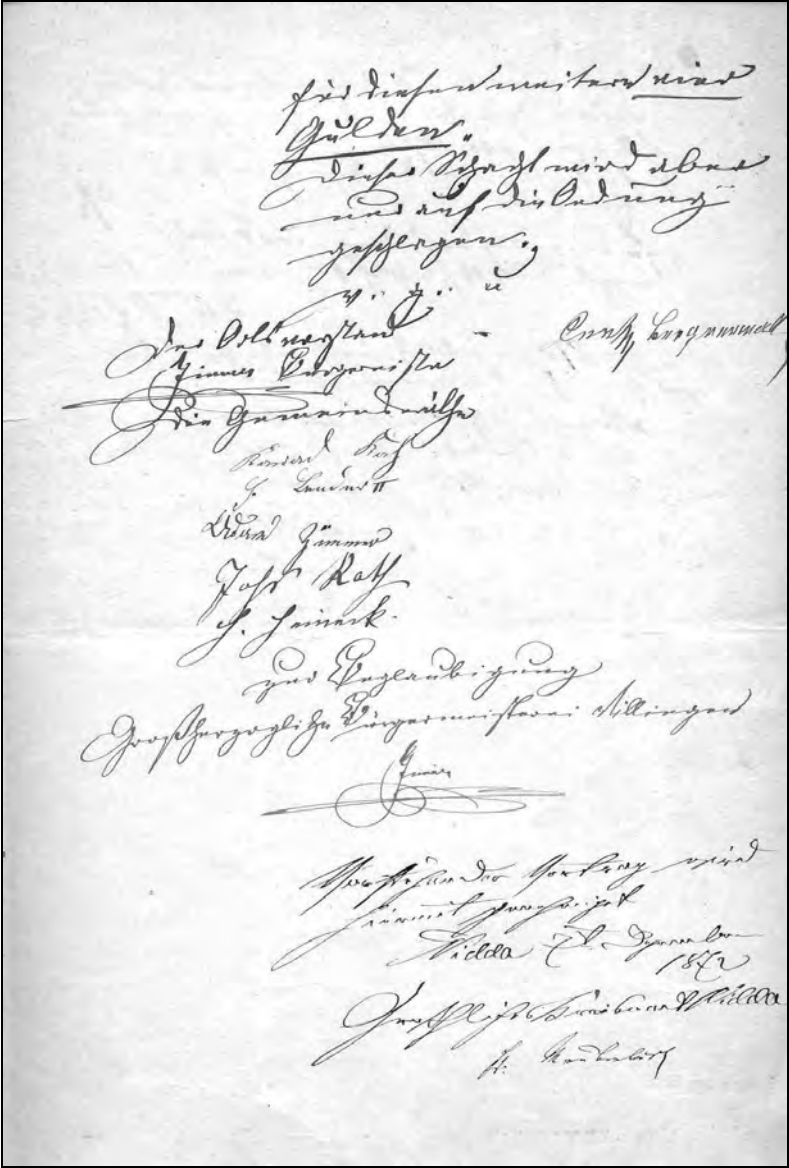 für diesen weitern vier
Gulden.
Dieser Schacht wird aber
nur auf die Ordnung
geschlagen.
v. g. u
Der Ortsvorstand
Zimmer Bürgermeister
Die Gemeinderäthe
Konrad Koch
H. Bender II
Adam Zimmer
Johs Rath
H. Heineck.
zur Beglaubigung
Großherzogliche Bürgermeisterei Villingen
Zimmer
Vorstehender Vertrag wird
hiermit genehmigt
Nidda Dezember
1872
Kreisamt Nidda